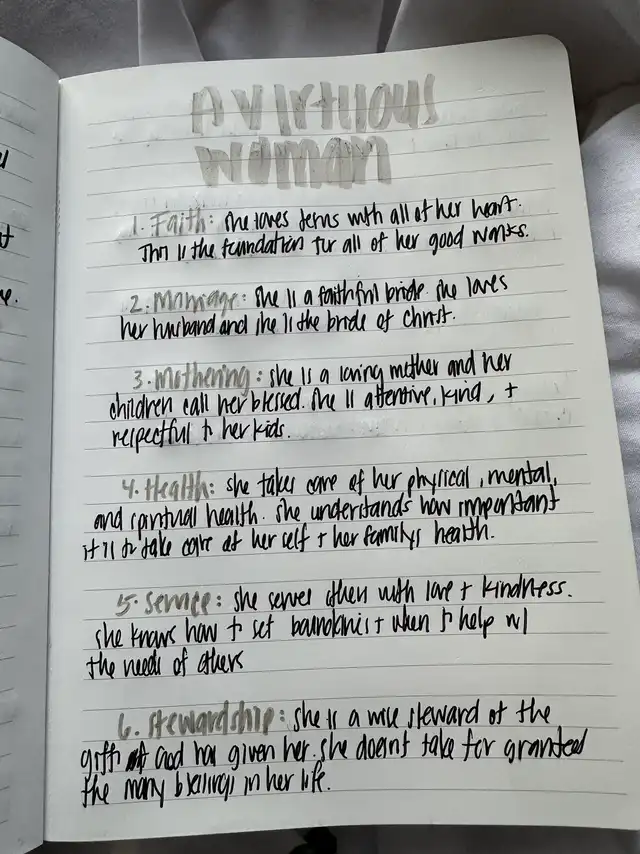 A virtuous
woman
1. Faith: she loves Jesus with all of her heart.
This is the foundation for all of her good works.
2. Marriage: she is a faithful bride. she loves
her husband and she is the bride of Christ.
3. Mothering: she is a loving mother and her
children call her blessed. She is attentive, kind, +
respectful to her kids.
4. Health: she takes care of her physical, mental,
and spiritual health. She understands how important
it is to take care of her self + her familys health.
5. Service: she serves others with love + kindness.
she knows how to set boundaries + when to help w/
the needs of others
6. Stewardship: she is a wise steward of the
gifts God has given her. she doesnt take for granted
the many blessings in her life.